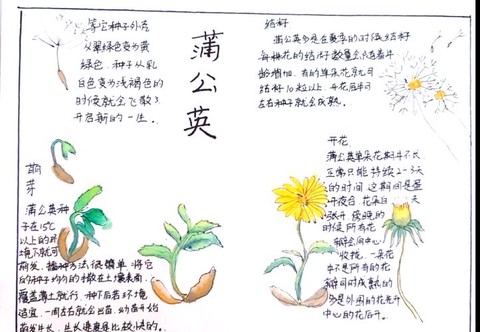 蒲公英
等它种子外壳
从翠绿色变为黄
绿色,种子从乳
白色变为浅褐色的
时候就会飞散了
开启新的一生。
结籽
蒲公英多是在夏季的时候结籽
每种花的结籽数量会随着年
龄增加,有的单朵花就可
结籽100粒以上,开花后半月
左右种子就会成熟。
萌
芽
蒲公英种
子在15℃
以上的
境下就可
萌发,播种方法很简单,将它
的种子均匀的播散在土壤表面
覆盖薄土就行,种下后若环境
适宜,一周左右就会出苗,幼苗开始
萌发生长,生长速度是比较快的。
开花
蒲公英单朵花期并不长
正常只能持续2-3天
的时间 这期间是
开夜合 花朵白天
张开 傍晚的
时候 所有花
瓣会向中心
收拢,一朵花
不是所有的花
瓣同时成熟的
多是外围的花先开
中心的花后开。